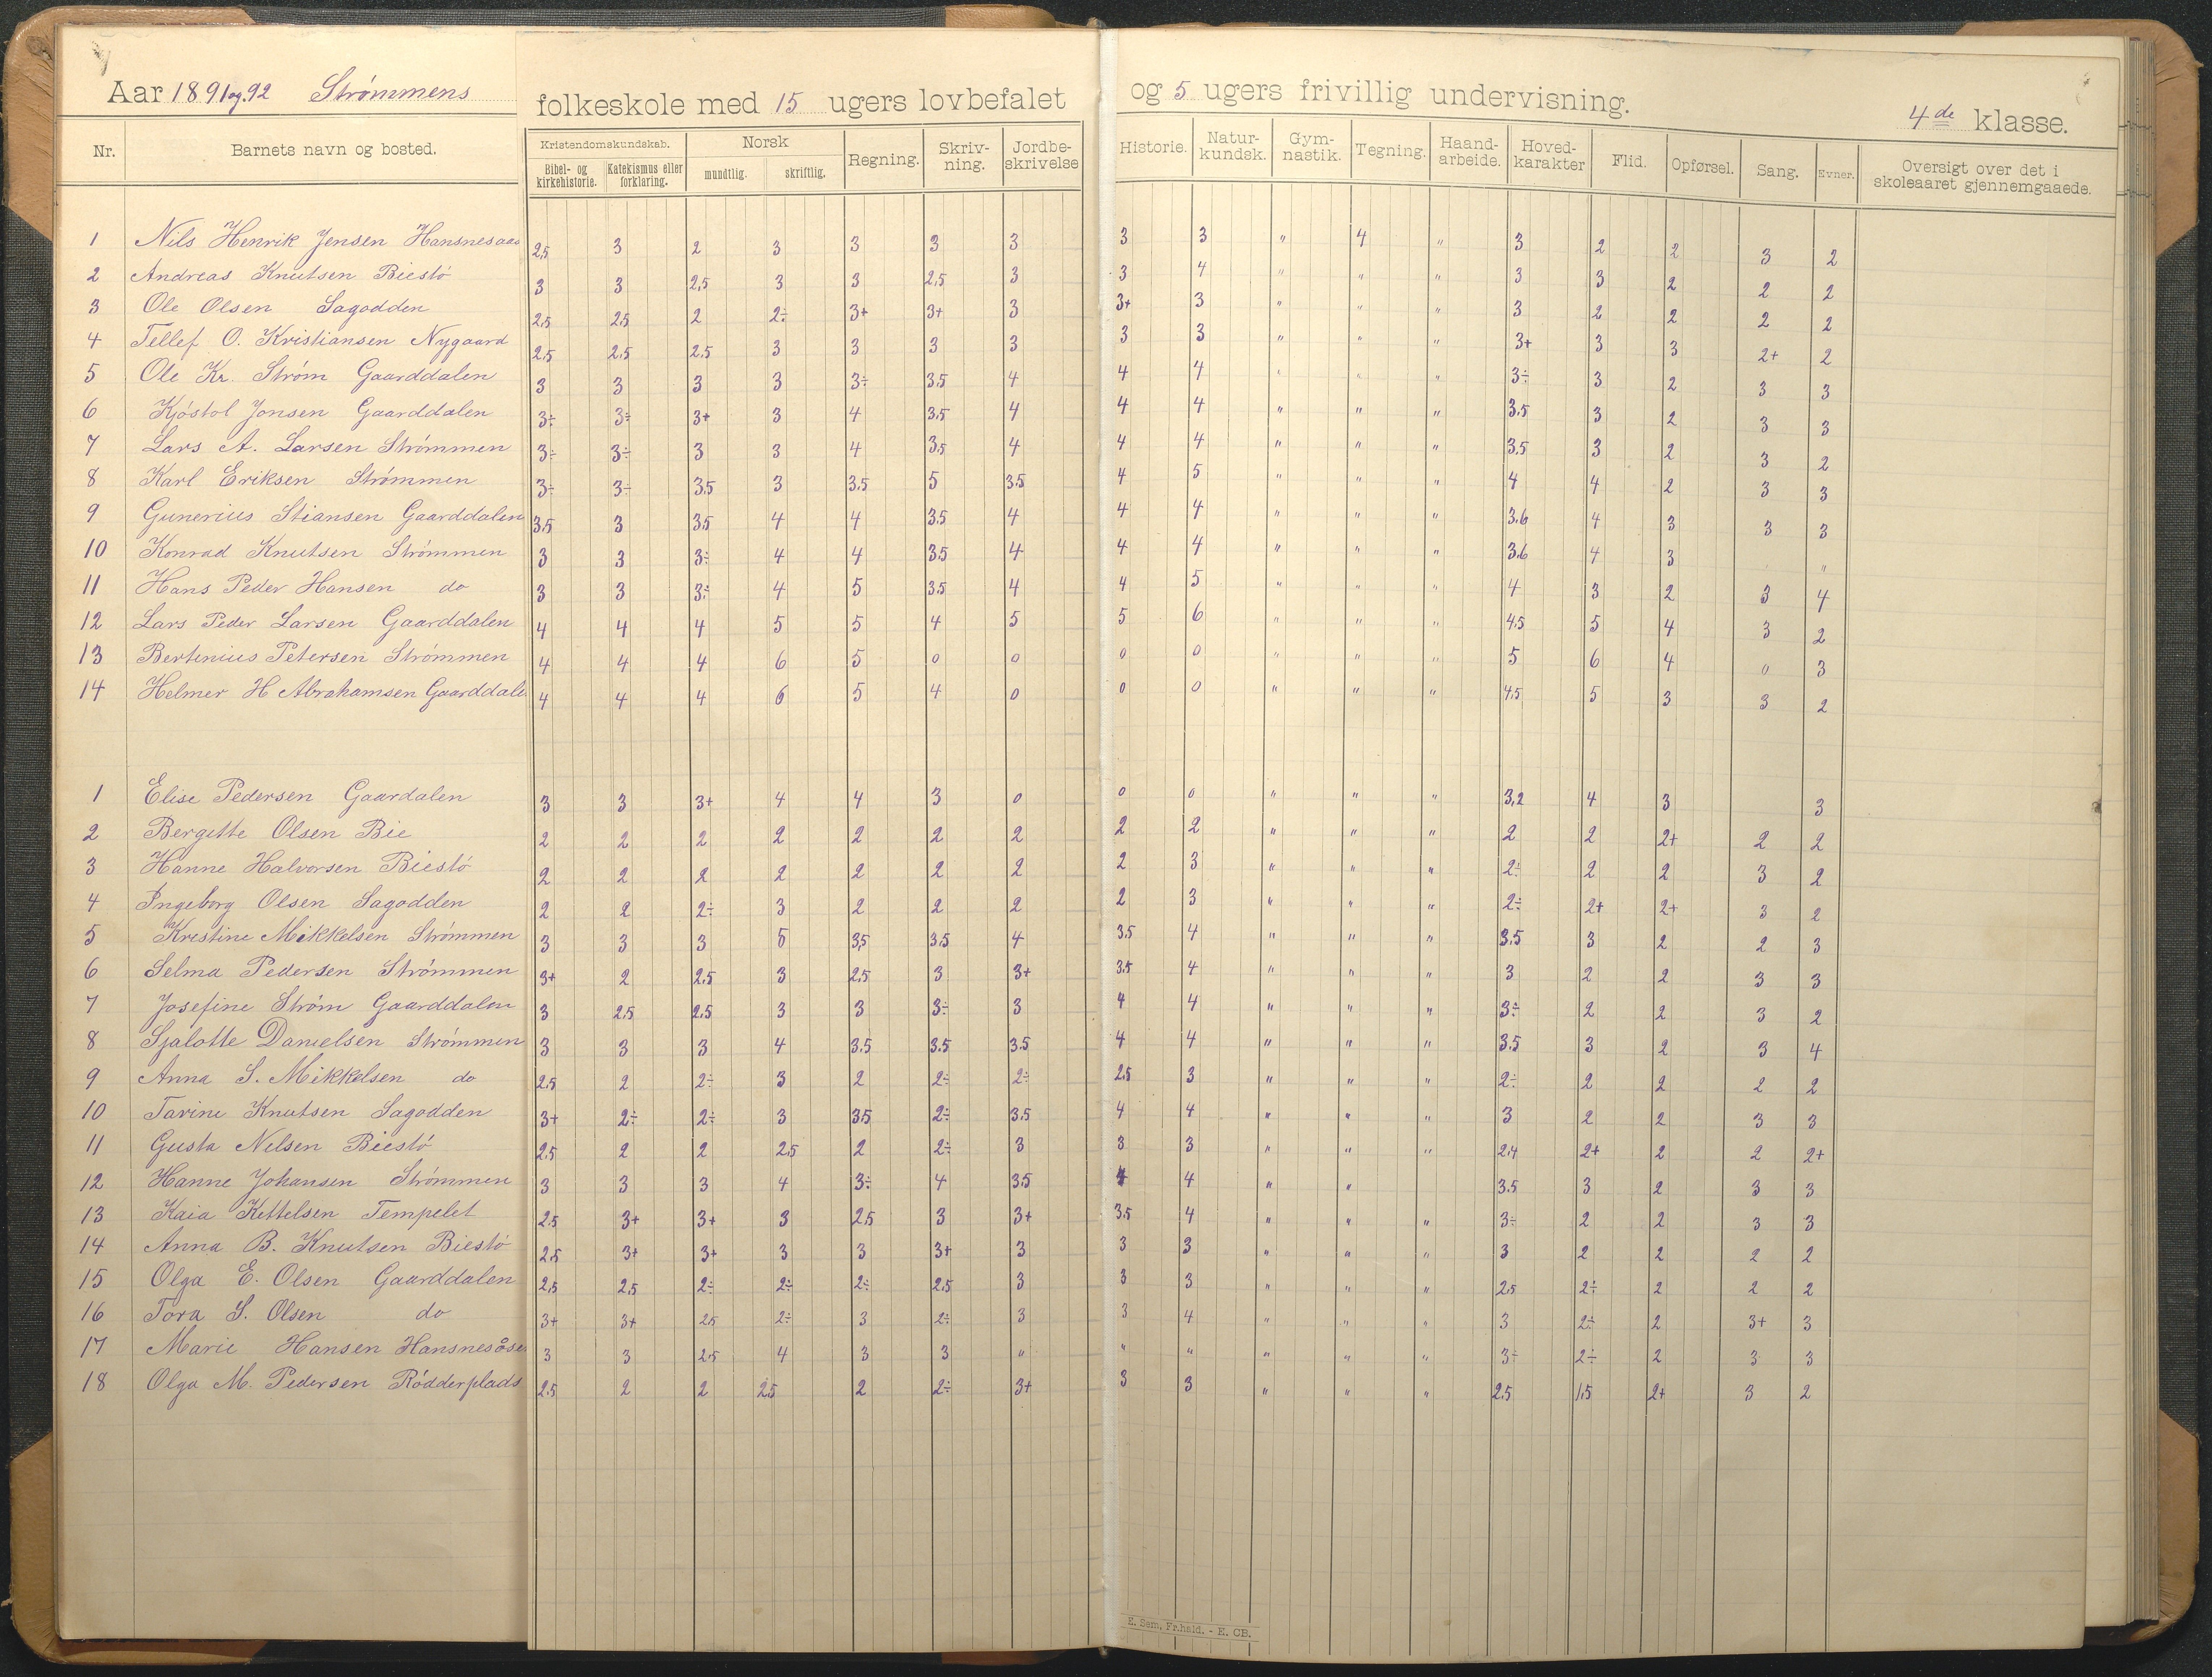 Aar 1891og.92 Strømmens folkeskole med 15 ugers lovbefalet og 5 ugers frivillig undervisning. 4de klasse.
Nr. Barnets navn og bosted. Kristendomskundskab. Bibel- og kirkehistorie. Katekismus eller forklaring. Norsk mundtlig. skriftlig. Regning. Skriv-ning. Jordbe-skrivelse Historie. Natur-kundsk. Gym-nastik. Tegning. Haand-arbeide. Hoved-karakter Flid. Opførsel. Sang. Evner. Oversigt over det i skoleaaret gjennemgaaede.
1 Nils Henrik Jensen Hansnesaas 2,5 3 2 3 3 3 3 3 3 " 4 " 3 2 2 3 2
2 Andreas Knutsen Biestö 3 3 2,5 3 3 2,5 3 3 4 " " " 3 3 2 2 2
3 Ole Olsen Sagodden 2,5 2,5 2 2÷ 3+ 3+ 3 3+ 3 " " " 3 2 2 2 2
4 Tellef O. Kristiansen Nygaard 2,5 2,5 2,5 3 3 3 3 3 3 " " " 3+ 3 3 2+ 2
5 Ole Kr. Strøm Gaarddalen 3 3 3 3 3÷ 3,5 4 4 4 " " " 3÷ 3 2 3 3
6 Kjöstol Jonsen Gaarddalen 3÷ 3÷ 3+ 3 4 3,5 4 4 4 " " " 3,5 3 2 3 3
7 Lars A. Larsen Strömmen 3÷ 3÷ 3 3 4 3,5 4 4 4 " " " 3,5 3 2 3 2
8 Karl Eriksen Strømmen 3÷ 3÷ 3,5 3 3,5 5 3,5 4 5 " " " 4 4 2 3 3
9 Gunerius Stiansen Gaarddalen 3,5 3 3,5 4 4 3,5 4 4 4 " " " 3,6 4 3 3 3
10 Konrad Knutsen Strömmen 3 3 3÷ 4 4 3,5 4 4 4 " " " 3,6 4 3 "
11 Hans Peder Hansen do 3 3 3÷ 4 5 3,5 4 4 5 " " " 4 3 2 3 4
12 Lars Peder Larsen Gaarddalen 4 4 4 5 5 4 5 5 6 " " " 4,5 5 4 3 2
13 Bertinius Petersen Strömmen 4 4 4 6 5 0 0 0 0 " " " 5 6 4 0 3
14 Helmer H Abrahamsen Gaarddale 4 4 4 6 5 4 0 0 0 " " " 4,5 5 3 3 2
1 Elise Pedersen Gaardalen 3 3 3+ 4 4 3 0 0 0 " " " 3,2 4 3 3
2 Bergitte Olsen Bie 2 2 2 2 2 2 2 2 2 " " " 2 2 2+ 2 2
3 Hanne Halvorsen Biestö 2 2 2 2 2 2 2 2 3 " " " 2÷ 2 2 3 2
4 Ingeborg Olsen Sagodden 2 2 2÷ 3 2 2 2 2 3 " " " 2÷ 2+ 2+ 3 2
5 Krestine Mikkelsen Strømmen 3 3 3 5 3,5 3,5 4 3,5 4 " " " 3,5 3 2 2 3
6 Selma Pedersen Strömmen 3+ 2 2,5 3 2,5 3 3+ 3,5 4 " " " 3 2 2 3 3
7 Josefine Strøm Gaarddalen 3 2,5 2,5 3 3 3÷ 3 4 4 " " " 3÷ 2 2 3 2
8 Sjalotte Danielsen Strømmen 3 3 3 4 3,5 3,5 3,5 4 4 " " " 3,5 3 2 3 4
9 Anna S. Mikkelsen do 2,5 2 2÷ 3 2 2÷ 2÷ 2,5 3 " " " 2÷ 2 2 2 2
10 Tarine Knutsen Sagodden 3+ 2÷ 2÷ 3 3,5 2÷ 3,5 4 4 " " " 3 2 2 3 3
11 Gusta Nelsen Biestö 2,5 2 2 2,5 2 2÷ 3 3 3 " " " 2,4 2+ 2 2 2+
12 Hanne Johansen Strømmen 3 3 3 4 3÷ 4 3,5 4 4 " " 3,5 3 2 3 3
13 Kaia Kettelsen Tempelet 2,5 3+ 3+ 3 2,5 3 3+ 3,5 4 " " " 3÷ 2 2 3 3
14 Anna B. Knutsen Biestö 2,5 3+ 3+ 3 3 3+ 3 3 3 " " " 3 2 2 2 2
15 Olga E. Olsen Gaarddalen 2,5 2,5 2÷ 2÷ 2÷ 2,5 3 3 3 " " " 2,5 2÷ 2 2 2
16 Tora S. Olsen do 3+ 3+ 2,5 2÷ 3 2÷ 3 3 4 " " " 3 2÷ 2 3+ 3
17 Marie Hansen Hansnesåse 3 3 2,5 4 3 3 " " " " " " 3÷ 2÷ 2 3 3
18 Olga M. Pedersen Rödderplads 2,5 2 2 2,5 2 2÷ 3+ 3 3 " " " 2,5 1,5 2+ 3 2
E. Sem, Fr.hald. - E. CB.